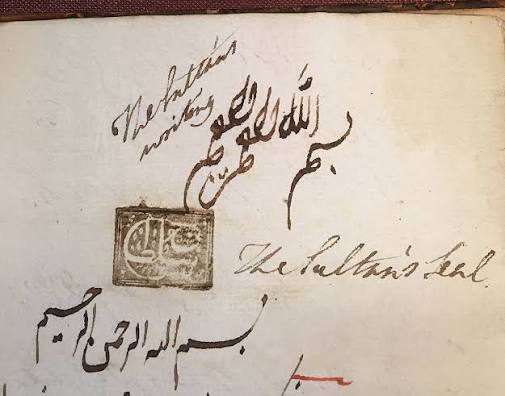 The Sultan's
writing
بسم الله
The Sultan's Seal.
بسم الله الرحمن الرحيم